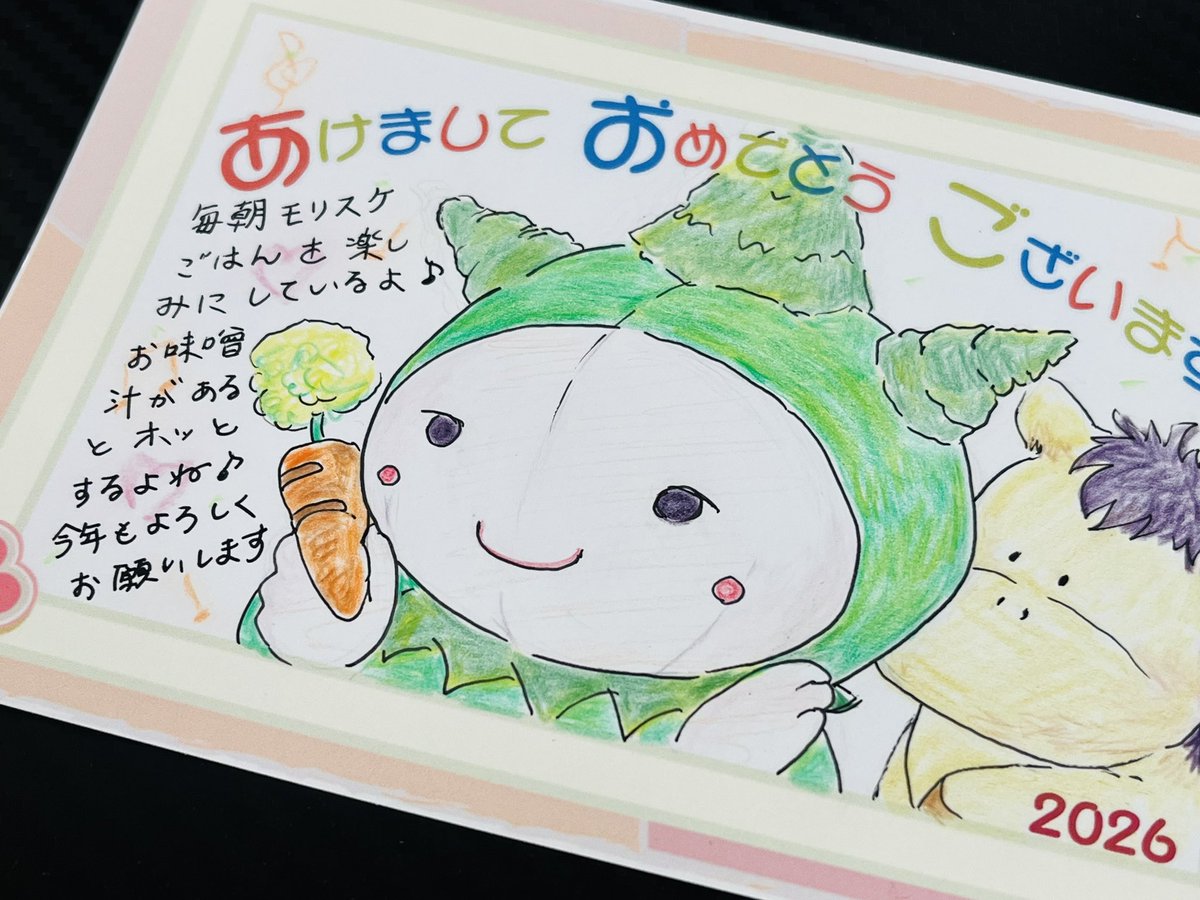 あけまして おめでとう ございます
毎朝モリスケ
ごはんを楽し
みにしているよ♪
お味噌
汁がある
とホッと
するよね♪
今年もよろしく
お願いします
2026